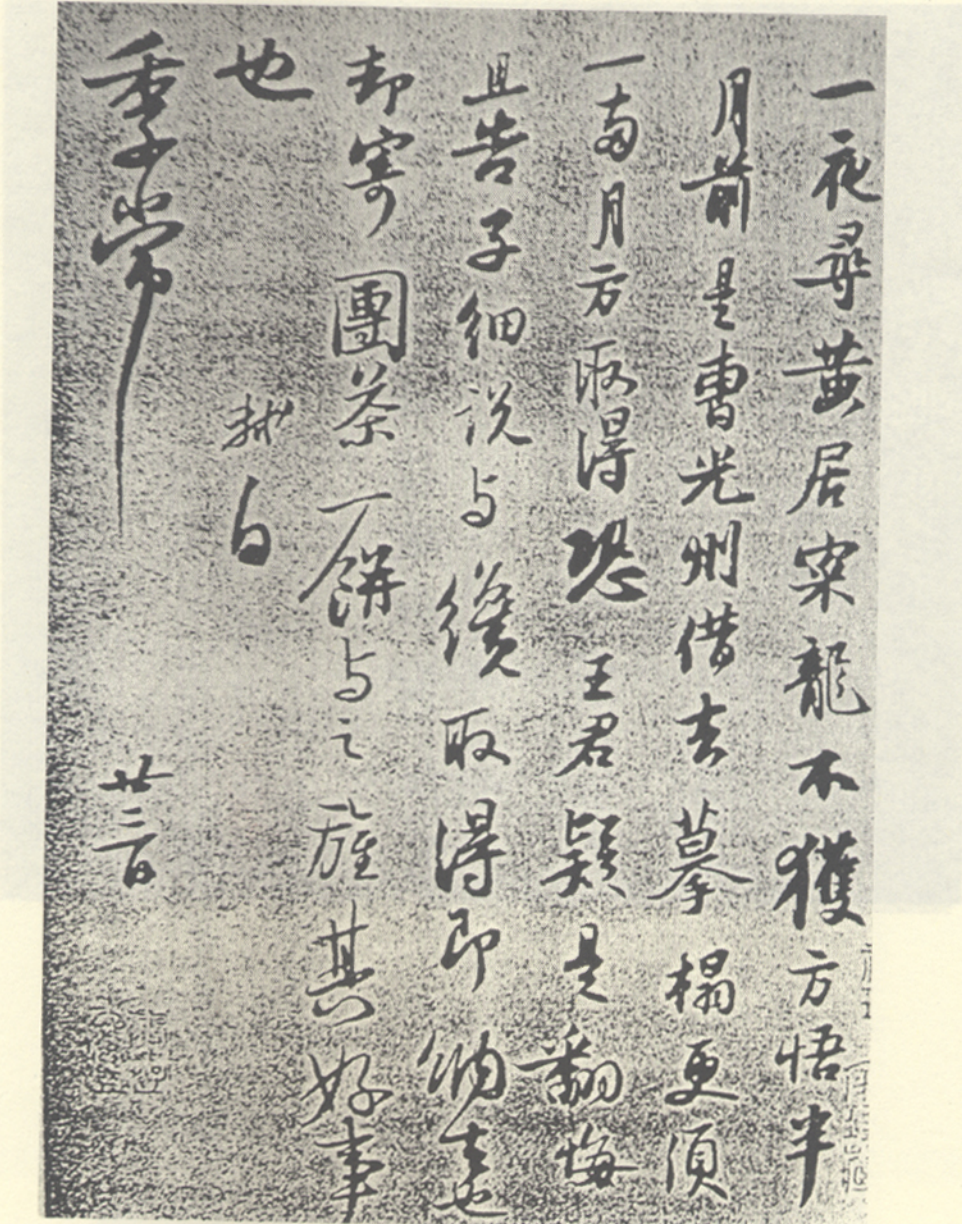 一夜尋黃居寀龍不獲方悟半
月前是曹光州借去摹榻更須
一兩月方取得恐王君疑是翻悔
且告子細說与纔取得即納去也
却寄團茶一餅与之旌其好事
也軾白
季常廿三日